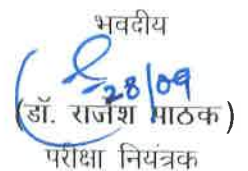 भवदीय
28/09
(डॉ. राजेश पाठक)
परीक्षा नियंत्रक